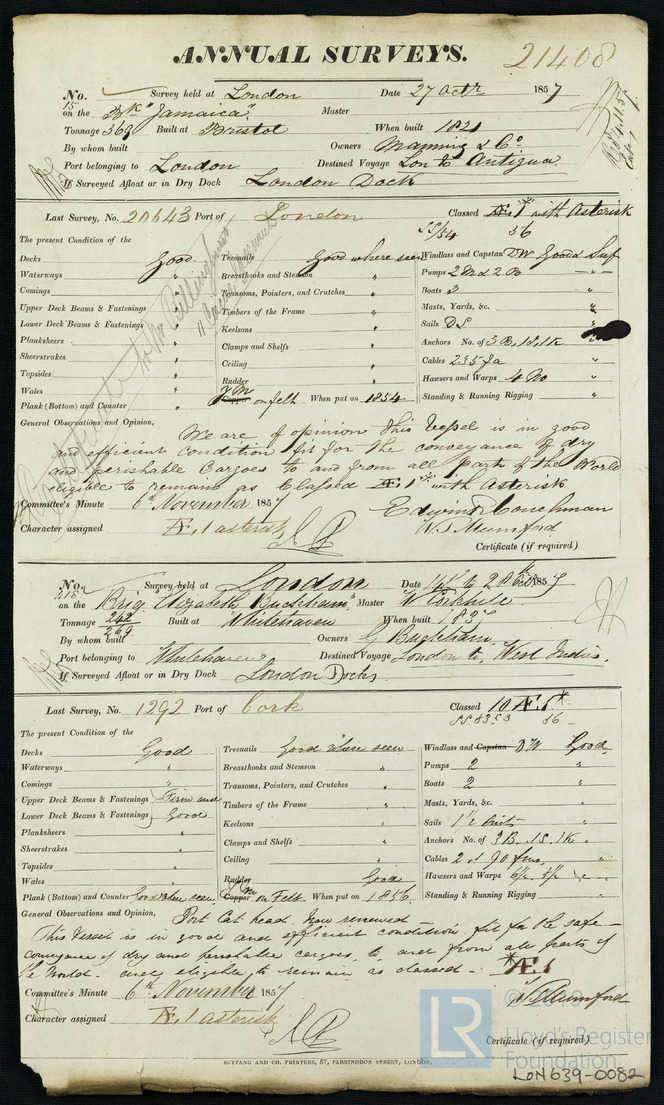 ANNUAL SURVEYS. 21408
No. 15 Survey held at London Date 27 Octr 1857
on the Bk "Jamaica" Master
Tonnage 369 Built at Bristol When built 1821
By whom built Owners Manning & Co
Port belonging to London Destined Voyage Lon to Antigua
If Surveyed Afloat or in Dry Dock London Dock
Last Survey, No. 20643 Port of London Classed Æ 1* with Asterisk
SS/54 56
The present Condition of the
Decks Good Treenails Good where seen Windlass and Capstan DW Good & Suf
Waterways " Breasthooks and Stemson " Pumps 2 M & 2 B
Comings " Transoms, Pointers, and Crutches " Boats 3 "
Upper Deck Beams & Fastenings " Timbers of the Frame " Masts, Yards, &c. "
Lower Deck Beams & Fastenings " Keelsons " Sails DS
Planksheers " Clamps and Shelfs " Anchors No. of 3 B, 1S, 1K
Sheerstrakes " Ceiling " Cables 235 fa "
Topsides " Rudder " Hawsers and Warps 4 No "
Wales " YM Copper on felt When put on 1854 Standing & Running Rigging "
Plank (Bottom) and Counter "
General Observations and Opinion, We are of opinion this Vessel is in good
and efficient condition fit for the conveyance of dry
and perishable Cargoes to and from all parts of the World
eligible to remain as Classed Æ 1* with Asterisk
Committee's Minute 6th November 1857
Character assigned Æ, 1 asterisk W J Mumford
Certificate (if required)
No. 418 Survey held at London Date 14th to 28th Oct 1857
on the Brig "Elizabeth Buckham" Master W
Tonnage 242 269 Built at Whitehaven When built 1837
By whom built Owners G Buckham
Port belonging to Whitehaven Destined Voyage London to West Indies.
If Surveyed Afloat or in Dry Dock London Docks
Last Survey, No. 1292 Port of Cork Classed 10 Æ 1*
56
The present Condition of the
Decks Good Treenails Good where seen Windlass and Capstan DW Good
Waterways " Breasthooks and Stemson " Pumps 2 "
Comings " Transoms, Pointers, and Crutches " Boats 2 "
Upper Deck Beams & Fastenings Firm and Timbers of the Frame " Masts, Yards, &c. "
Lower Deck Beams & Fastenings Good Keelsons " Sails 1½ Suits "
Planksheers " Clamps and Shelfs " Anchors No. of 3 B. 1S. 1K "
Sheerstrakes " Ceiling " Cables 2 of 90 fms. "
Topsides " Rudder Good Hawsers and Warps "
Wales " YM Copper on Felt When put on 1856 Standing & Running Rigging "
Plank (Bottom) and Counter Good where seen
General Observations and Opinion, Port Cat head Now renewed
This Vessel is in good and efficient condition, fit for the safe
conveyance of dry and perishable cargoes, to and from all parts of
the World and eligible to remain as classed *Æ 1
Committee's Minute 6th November 1857 W J Mumford
Character assigned Æ, 1 asterisk
Certificate (if required)
SEYFANG AND CO. PRINTERS, 57, FARRINGDON STREET, LONDON.
LR Lloyd's Register
Foundation
LON639-0082